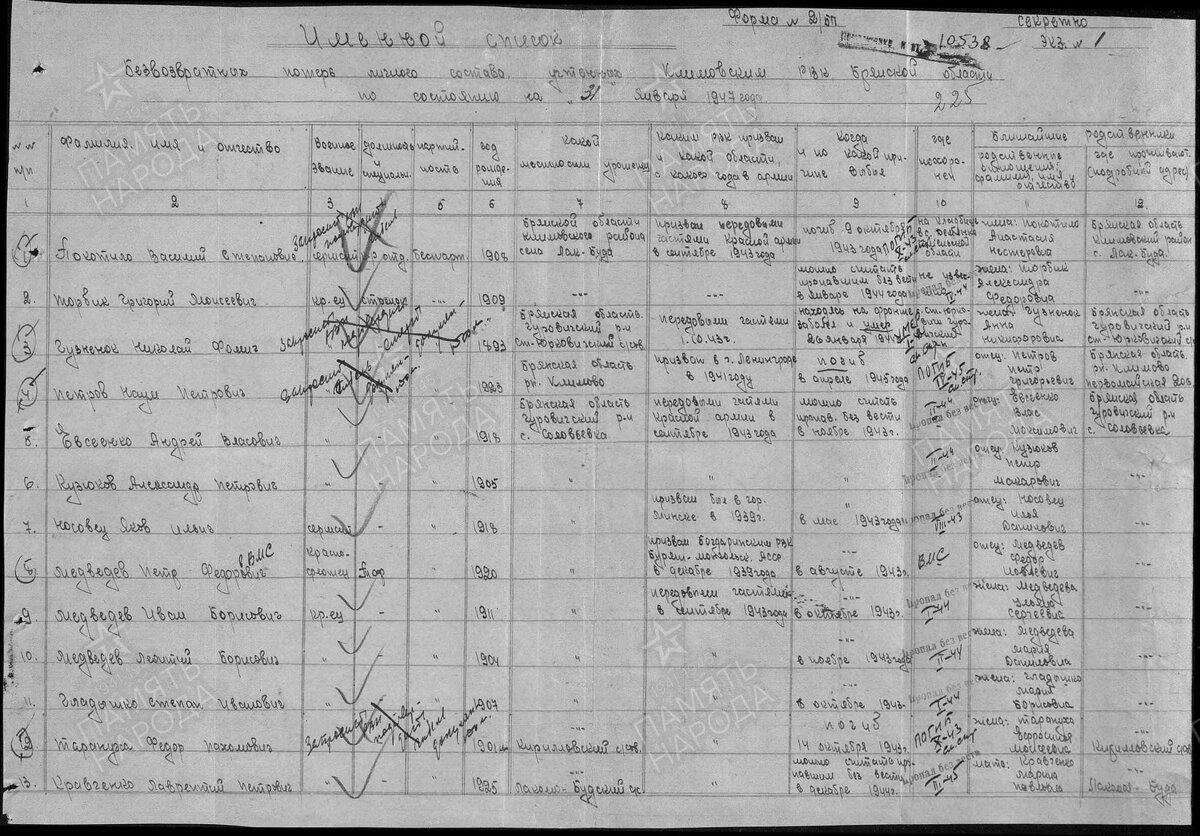 Форма № 2/БП
секретно
10538
экз. № 1
Именной список
безвозвратных потерь личного состава, учтенных Климовским РВК Брянской области
по состоянию на "31" января 1947 года.
225
№ №
п/п
Фамилия, имя и отчество
Военное звание
должность и специальн.
партий-ность
год рождения
какой местности уроженец
каким РВК призван и какой области, с какого года в армии
когда и по какой при-чине выбыл
где похоро-нен
Ближайшие родственники
родственные отношения, фамилия, имя и отчество
где проживают (подробный адрес)
1 2 3 5 6 7 8 9 10 11 12
1. Покотило Василий Степанович
сержант к-р отд. беспарт. 1908
Брянской области Климовского района села Лак-Буда
призван передовыми частями Красной армии в сентябре 1943 года
погиб 9 октября 1943 года
жена: Покотило Анастасия Нестеровна
Брянская область Климовский район с. Лак-Буда.
2. Торвик Григорий Моисеевич
кр-ец стрелок -"- 1909
-"- -"-
можно считать пропавшим без вести в январе 1944 года
жена: Торвик Александра Федоровна
-"-
3. Гузненок Николай Фомич
" 1893
Брянская область. Чуровичский р-н ст-Юрковичский с/сов.
передовыми частями 1.10.43 г.
находясь на фронте заболел и умер 26 января 1944
жена: Гузненок Анна Никифоровна
Брянская область Чуровичский р-н ст-Юрковичский с/с
4. Петров Наум Петрович
" 1923
Брянская область рн. Климово
призван в г. Ленинграде в 1941 году
погиб в апреле 1945 года
Погиб IV-45
отец: Петров Петр Григорьевич
Брянская область. рн. Климово первомайская
5. Евсеенко Андрей Власович
" - " 1918
Брянская область Чуровичский р-н с. Соловьевка
передовыми частями Красной армии в сентябре 1943 года
можно считать пропав. без вести в ноябре 1943 г.
Пропал без вести
отец: Евсеенко Влас Максимович
Брянская область Чуровичский р-н с. Соловьевка
6. Кузюков Александр Петрович
" - " 1905
" " "
II-44
Пропал без вести
отец: Кузюков Петр Макарович
-"-
7. Носовец Яков Ильич
сержант - " 1918
"
призван был в гор. Минске в 1939 г.
в мае 1943 года
Пропал без вести
VIII-43
отец: Носовец Илья Данилович
-"-
8. Медведев Петр Федорович
ВМС
красно-флотец " 1920
"
призван Богдаринским РВК Бурят-монгольск. АССР в декабре 1939 года
-"- в августе 1943 г.
ВМС
отец: Медведев Федор
-"-
9. Медведев Иван Борисович
кр-ец " 1911
"
передовыми частями в сентябре 1943 года
-"- в октябре 1943 г.
Пропал без вести
I-44
жена: Медведева Ульяна Сергеевна
-"-
10. Медведев Леонтий Борисович
" - " 1904
" "
-"- в ноябре 1943 года
Пропал без вести
II-44
жена: Медведева Мария Даниловна
-"-
11. Гладышко Степан Иванович
" - " 1907
" "
-"- в октябре 1943 г.
Пропал без вести
I-44
жена: Гладышко Мария Борисовна
-"-
12. Тарануха Федор Пахомович
" 1901
Кирилловский с/сов.
"
погиб 14 октября 1943 г.
Погиб X-43
жена: Тарануха Моисеевна
Кирилловский с/сов
13. Кравченко Лаврентий Петрович
" - " 1925
-"- Лакомо-Будский с/с.
"
можно считать про-павшим без вести в декабре 1944 г.
Пропал без вести
III-45
мать: Кравченко Мария Павловна
-"- Лакомо-Буда
ПАМЯТЬ НАРОДА